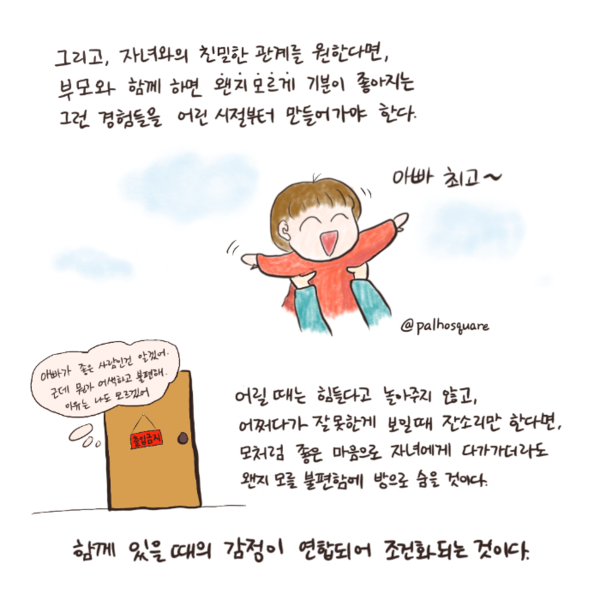 그리고, 자녀와의 친밀한 관계를 원한다면,
부모와 함께 하면 왠지모르게 기분이 좋아지는
그런 경험들을 어린 시절부터 만들어가야 한다.
아빠 최고~
@palhosquare
아빠가 좋은 사람인건 알겠어.
근데 뭔가 어색하고 불편해.
이유는 나도 모르겠어
출입금지
어릴 때는 힘들다고 놀아주지 않고,
어쩌다가 잘못한게 보일때 잔소리만 한다면,
모처럼 좋은 마음으로 자녀에게 다가가더라도
왠지 모를 불편함에 방으로 숨을 것이다.
함께 있을 때의 감정이 연합되어 조건화되는 것이다.